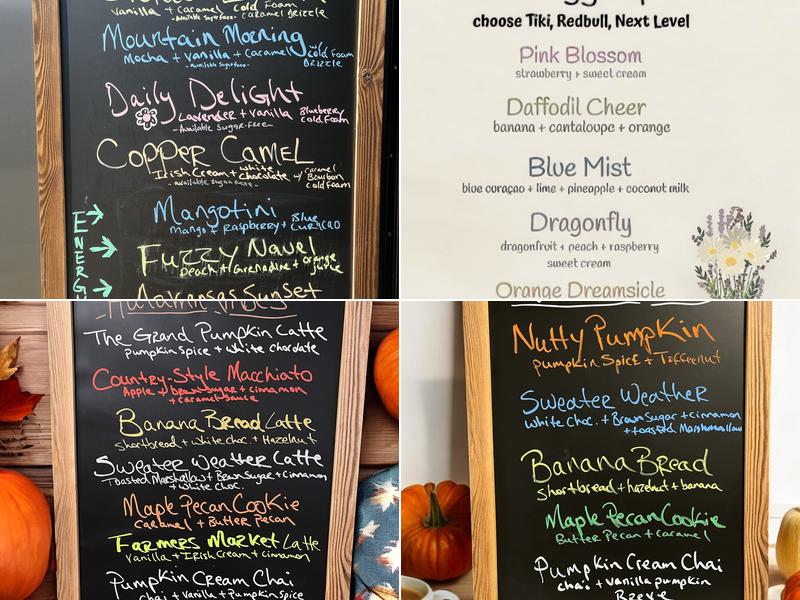 vanilla + caramel cold Foam
-Available Sugarfree- caramel Drizzle
Mountain Morning
Mocha + vanilla + caramel w/ cold Foam
-Available Sugarfree- Drizzle
Daily Delight
Lavender + vanilla Blueberry
-Available Sugar-free- cold foam
Copper Camel
Irish Cream + white chocolate w/ caramel Bourbon
-available sugarfree- cold foam
ENERGY
Mangotini
mango + raspberry + Blue Curacao
Fuzzy Navel
peach + Grenadine + orange juice
Sunset
choose Tiki, Redbull, Next Level
Pink Blossom
strawberry + sweet cream
Daffodil Cheer
banana + cantaloupe + orange
Blue Mist
blue curaçao + lime + pineapple + coconut milk
Dragonfly
dragonfruit + peach + raspberry
sweet cream
Orange Dreamsicle
The Grand Pumpkin Latte
pumpkin spice + white chocolate
Country-Style Macchiato
Apple + brown sugar + cinnamon
+ caramel sauce
Banana Bread Latte
shortbread + white choc. + Hazelnut
Sweater Weather Latte
Toasted Marshallow + Brown Sugar + Cinnamon
+ white choc.
Maple Pecan Cookie
caramel + Butter Pecan
Farmers Market Latte
vanilla + Irish Cream + cinnamon
Pumpkin Cream Chai
chai + vanilla + Pumpkin Spice
Nutty Pumpkin
pumpkin Spice + Toffeenut
Sweater Weather
white Choc. + Brown Sugar + cinnamon
+ toasted Marshmallow
Banana Bread
shortbread + hazelnut + banana
Maple Pecan Cookie
Butter Pecan + caramel
Pumpkin Cream Chai
chai + vanilla pumpkin